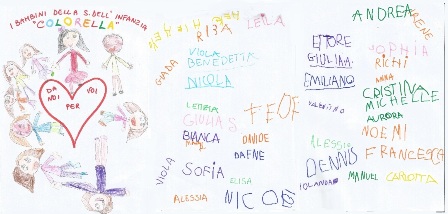 I BAMBINI DELLA S. DELL' INFANZIA
"COLORELLA"
DA NOI PER VOI
RIBA
LEILA
VIOLA
BENEDETTA
GIADA
NICOLA
LETIZIA
GIULIA S
BIANCA
DAVIDE
DAFNE
VIOLA
SOFIA
ELISA
ALESSIA
NICOE
FEDE
ETTORE
GIULIA A.
EMILIANO
VALENTINO
ALESSIO
DENNIS
IOLANDA
ANDREA
IRENE
SOPHIA
RICHI
ANNA
CRISTINA
MICHELLE
AURORA
NOEMI
FRANCESCA
MANUEL
CARLOTTA